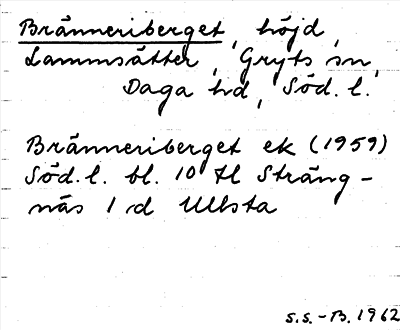 Bränneriberget, höjd,
Lammsätter, Gryts sn,
Daga hd, Söd. l.
Bränneriberget ek (1959)
Söd. l. bl. 10 tl Sträng-
näs 1 d Ullsta
S.S.-B. 1962